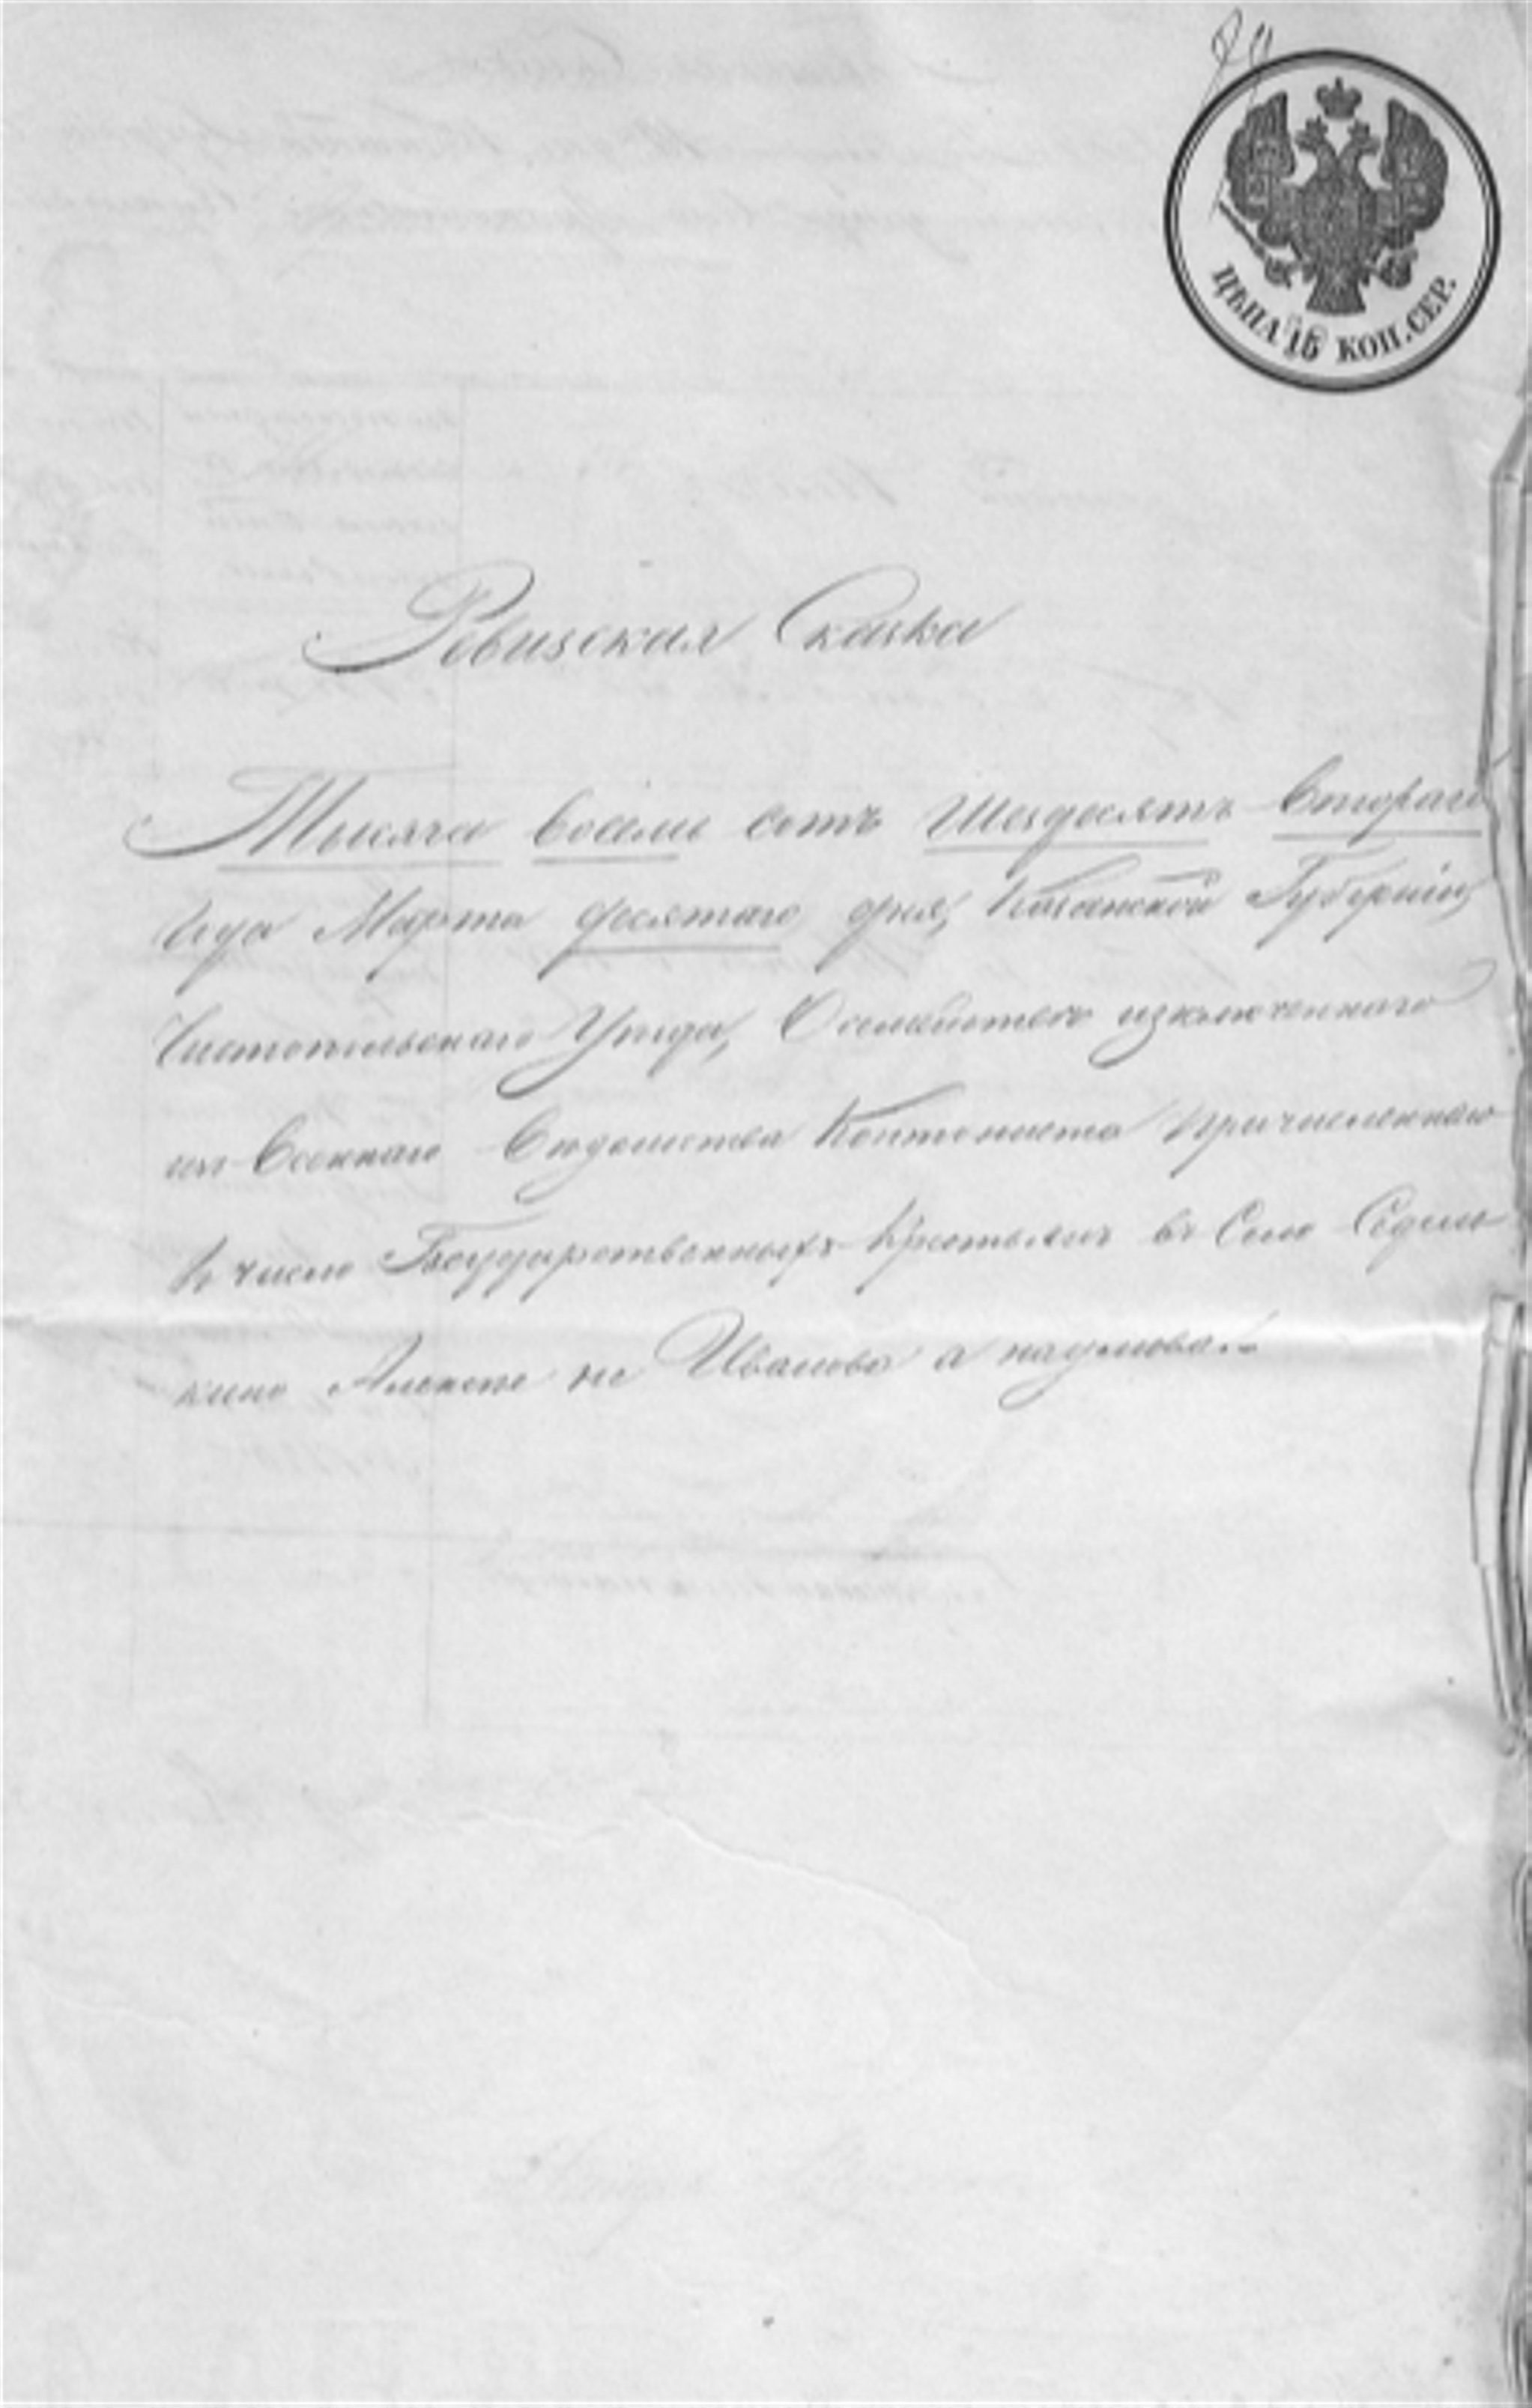 ЦѢНА 15 КОП. СЕР.
Ревизская Сказка
Тысяча восемь сотъ Шездесятъ втораго
года Марта десятаго дня, Казанской Губернiи,
Чистопольскаго Уѣзда, О семействѣ изключеннаго
изъ Военнаго Вѣдомства Кантониста причисленнаго
въ число Государственныхъ Крестьянъ въ Село Седель-
кино Алексѣе не Иванова а наумова.